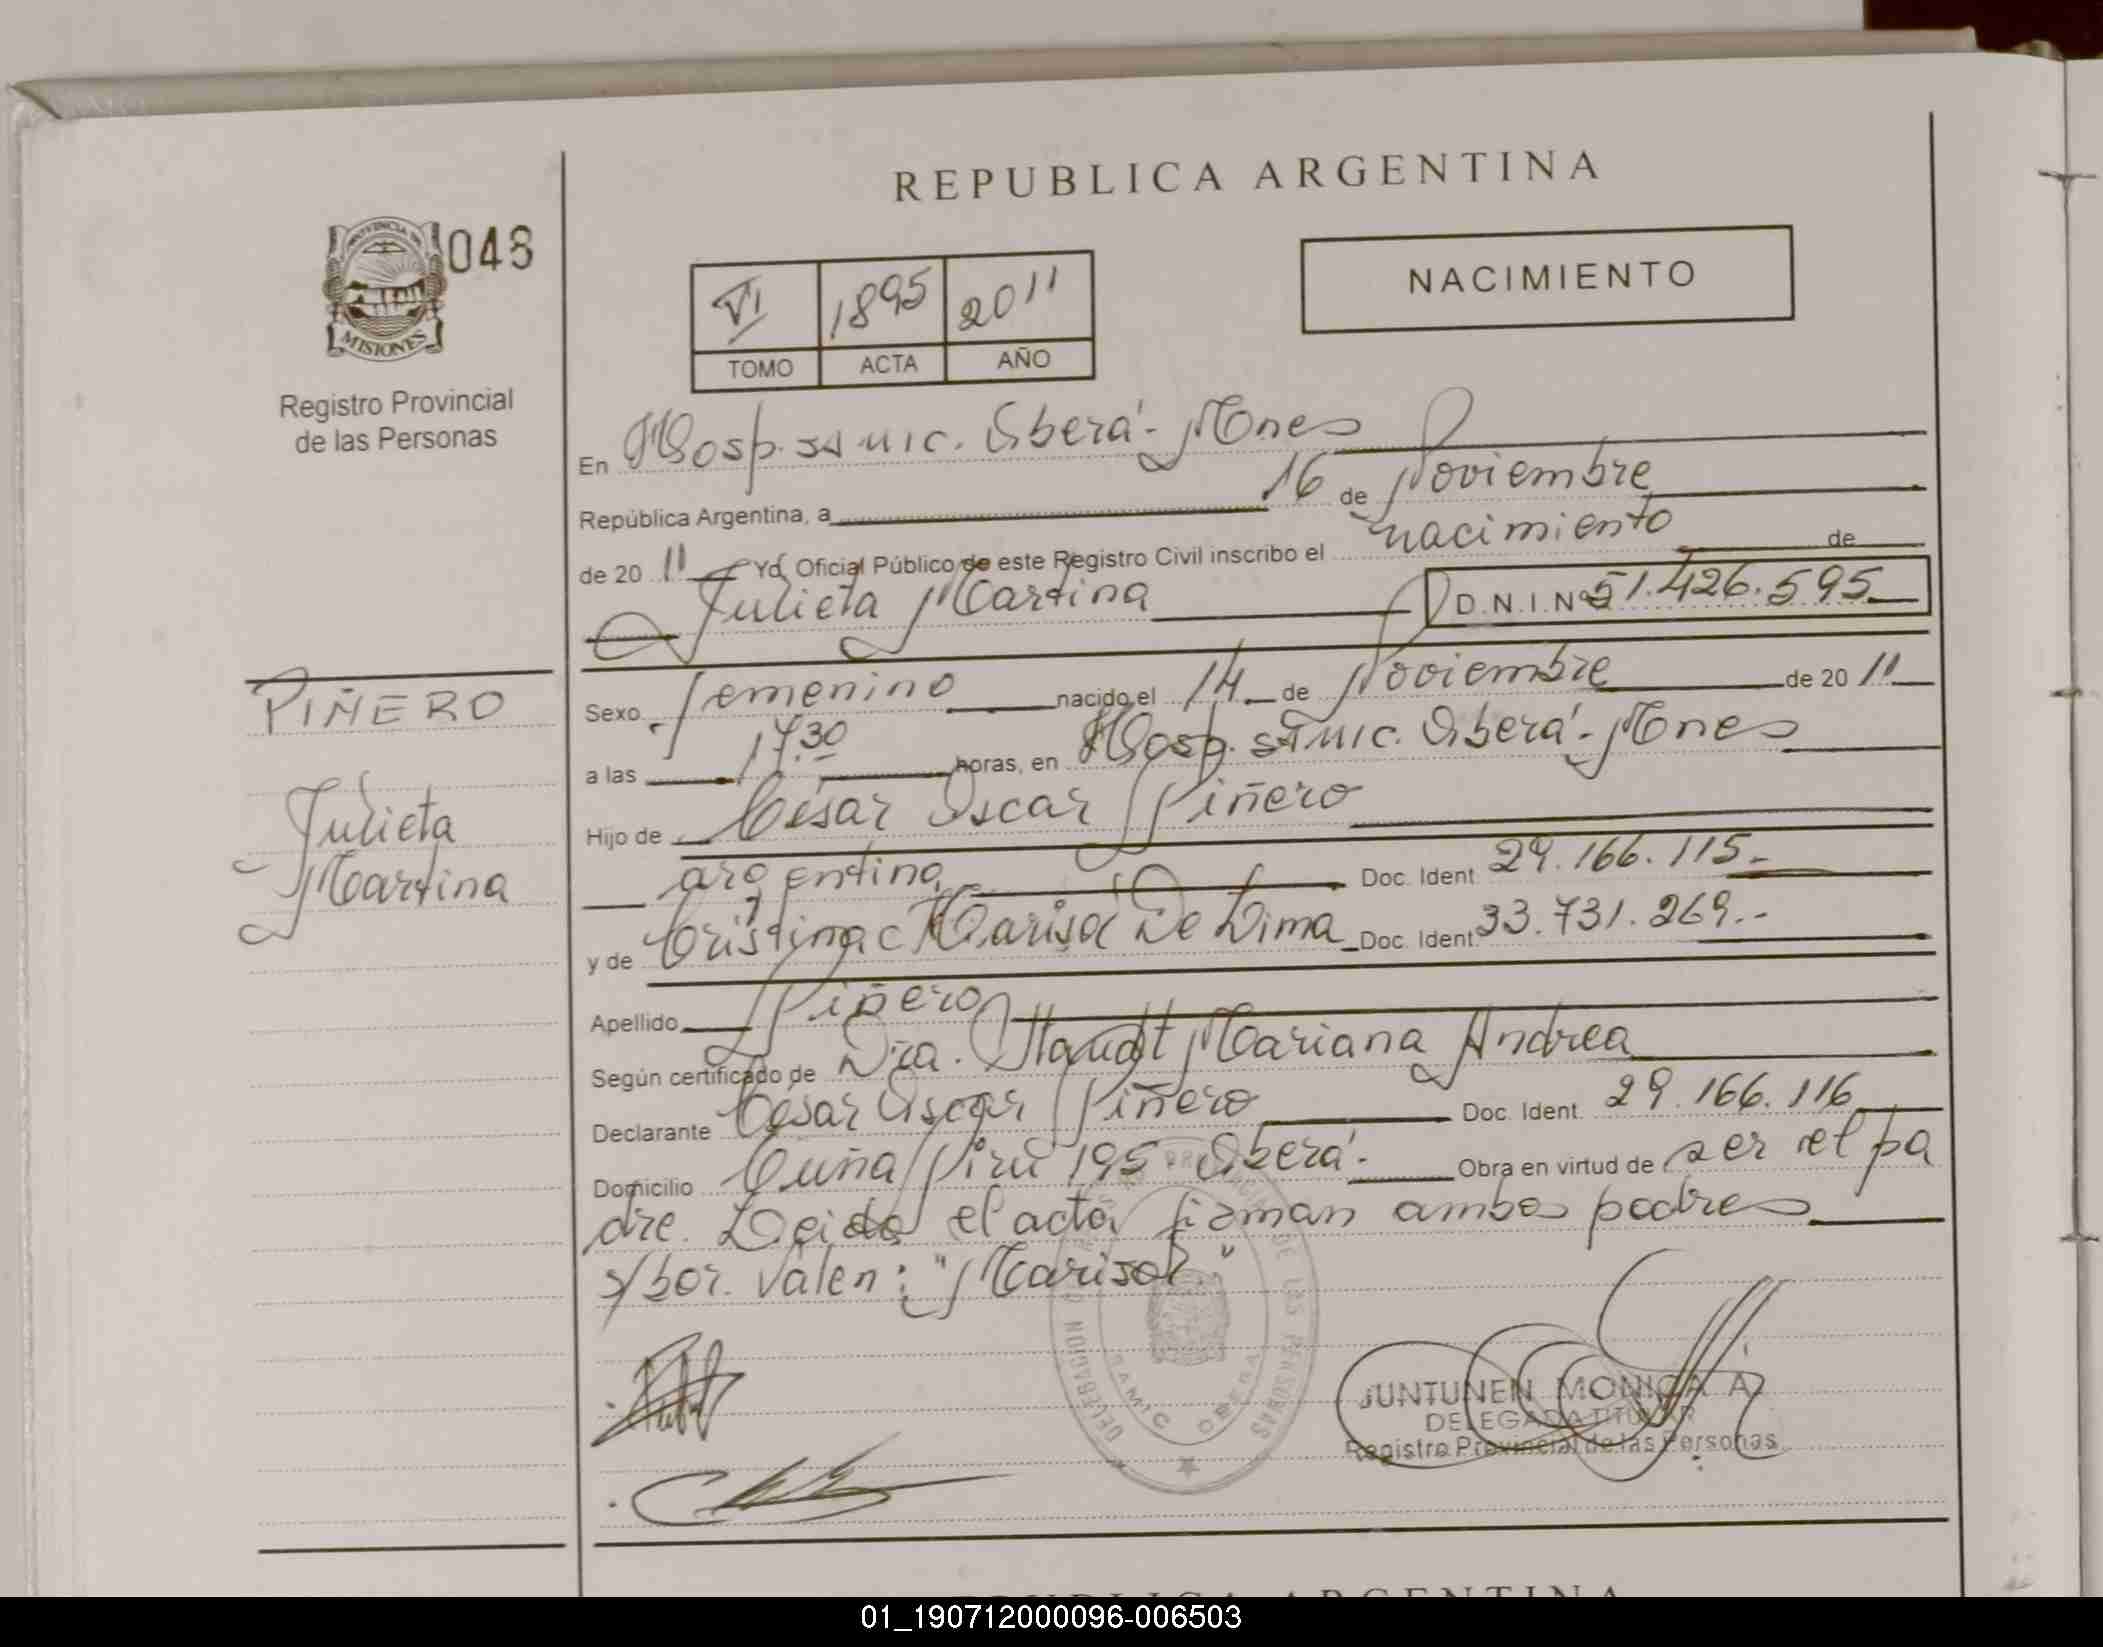 REPUBLICA ARGENTINA
PROVINCIA DE
MISIONES
048
Registro Provincial
de las Personas
VI 1895 2011
TOMO ACTA AÑO
NACIMIENTO
En Hosp. SAMIC. Oberá - Mnes
República Argentina, a 16 de Noviembre
de 20 11 Yo, Oficial Público de este Registro Civil inscribo el nacimiento de
Julieta Martina D.N.I. Nº 51.426.595
PIÑERO
Julieta
Martina
Sexo femenino nacido el 14 de Noviembre de 20 11
a las 17.30 horas, en Hosp. SAMIC. Oberá - Mnes
Hijo de César Oscar Piñero
argentino Doc. Ident. 29.166.115.-
y de Cristina Marisol De Lima Doc. Ident. 33.731.269.-
Apellido Piñero
Según certificado de Dra. Mariana Andrea
Declarante César Oscar Piñero Doc. Ident. 29.166.116
Domicilio Cuña Pirú 195 - Oberá - Obra en virtud de ser el pa
dre. Leida el acta firman ambos padres
s/bor. Valen: "Marisol."
DELEGACION
DE LAS PERSONAS
SAMIC OBERA
JUNTUNEN MONICA A.
DELEGADA TITULAR
Registro Provincial de las Personas
REPUBLICA ARGENTINA
01_190712000096-006503